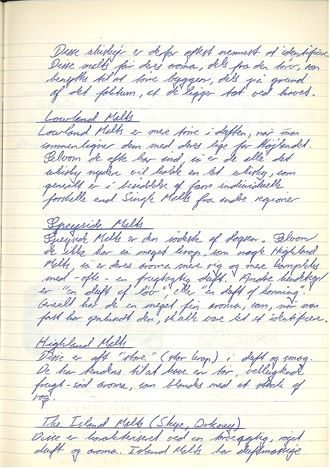 Disse whiskyer er derfor oftest nemmest at identificere.
Disse malts får deres aroma, dels fra den tørv, som
benyttes til at tørre byggen, dels på grund
af det faktum, at de ligger tæt ved havet.
Lowland Malts
Lowland Malts er mere tørre i duften, når man
sammenligner dem med deres lige fra Højlandet.
Selvom de ofte har sød, så er de alle det
whisky nyder vil kalde en let whisky, som
generelt er i besiddelse af færre individuelle
forskelle end Single Malts fra andre regioner
Speyside Malts
Speyside Malts er den sødeste af slagsen. Selvom
de ikke har så meget krop, som nogle Highland
Malts, så er deres aroma mere rig og mere komplekse
med - ofte - en frugtagtig duft. Andre kendetegn
er "en duft af" eller "a duft af honning".
Generelt har de en meget fin aroma, som, når man
først har genkendt den, skulle være let at identificere.
Highland Malts
Disse er oft "store" (stor krop) i duft og smag.
De har tendens til at have en tør, velliggende
frugt-sød aroma, som blandes med et stænk af
røg.
The Island Malts (Skye, Orkney)
Disse er karakteriseret ved en tørveagtig, røget
duft og aroma. Island Malts har duftmæssige